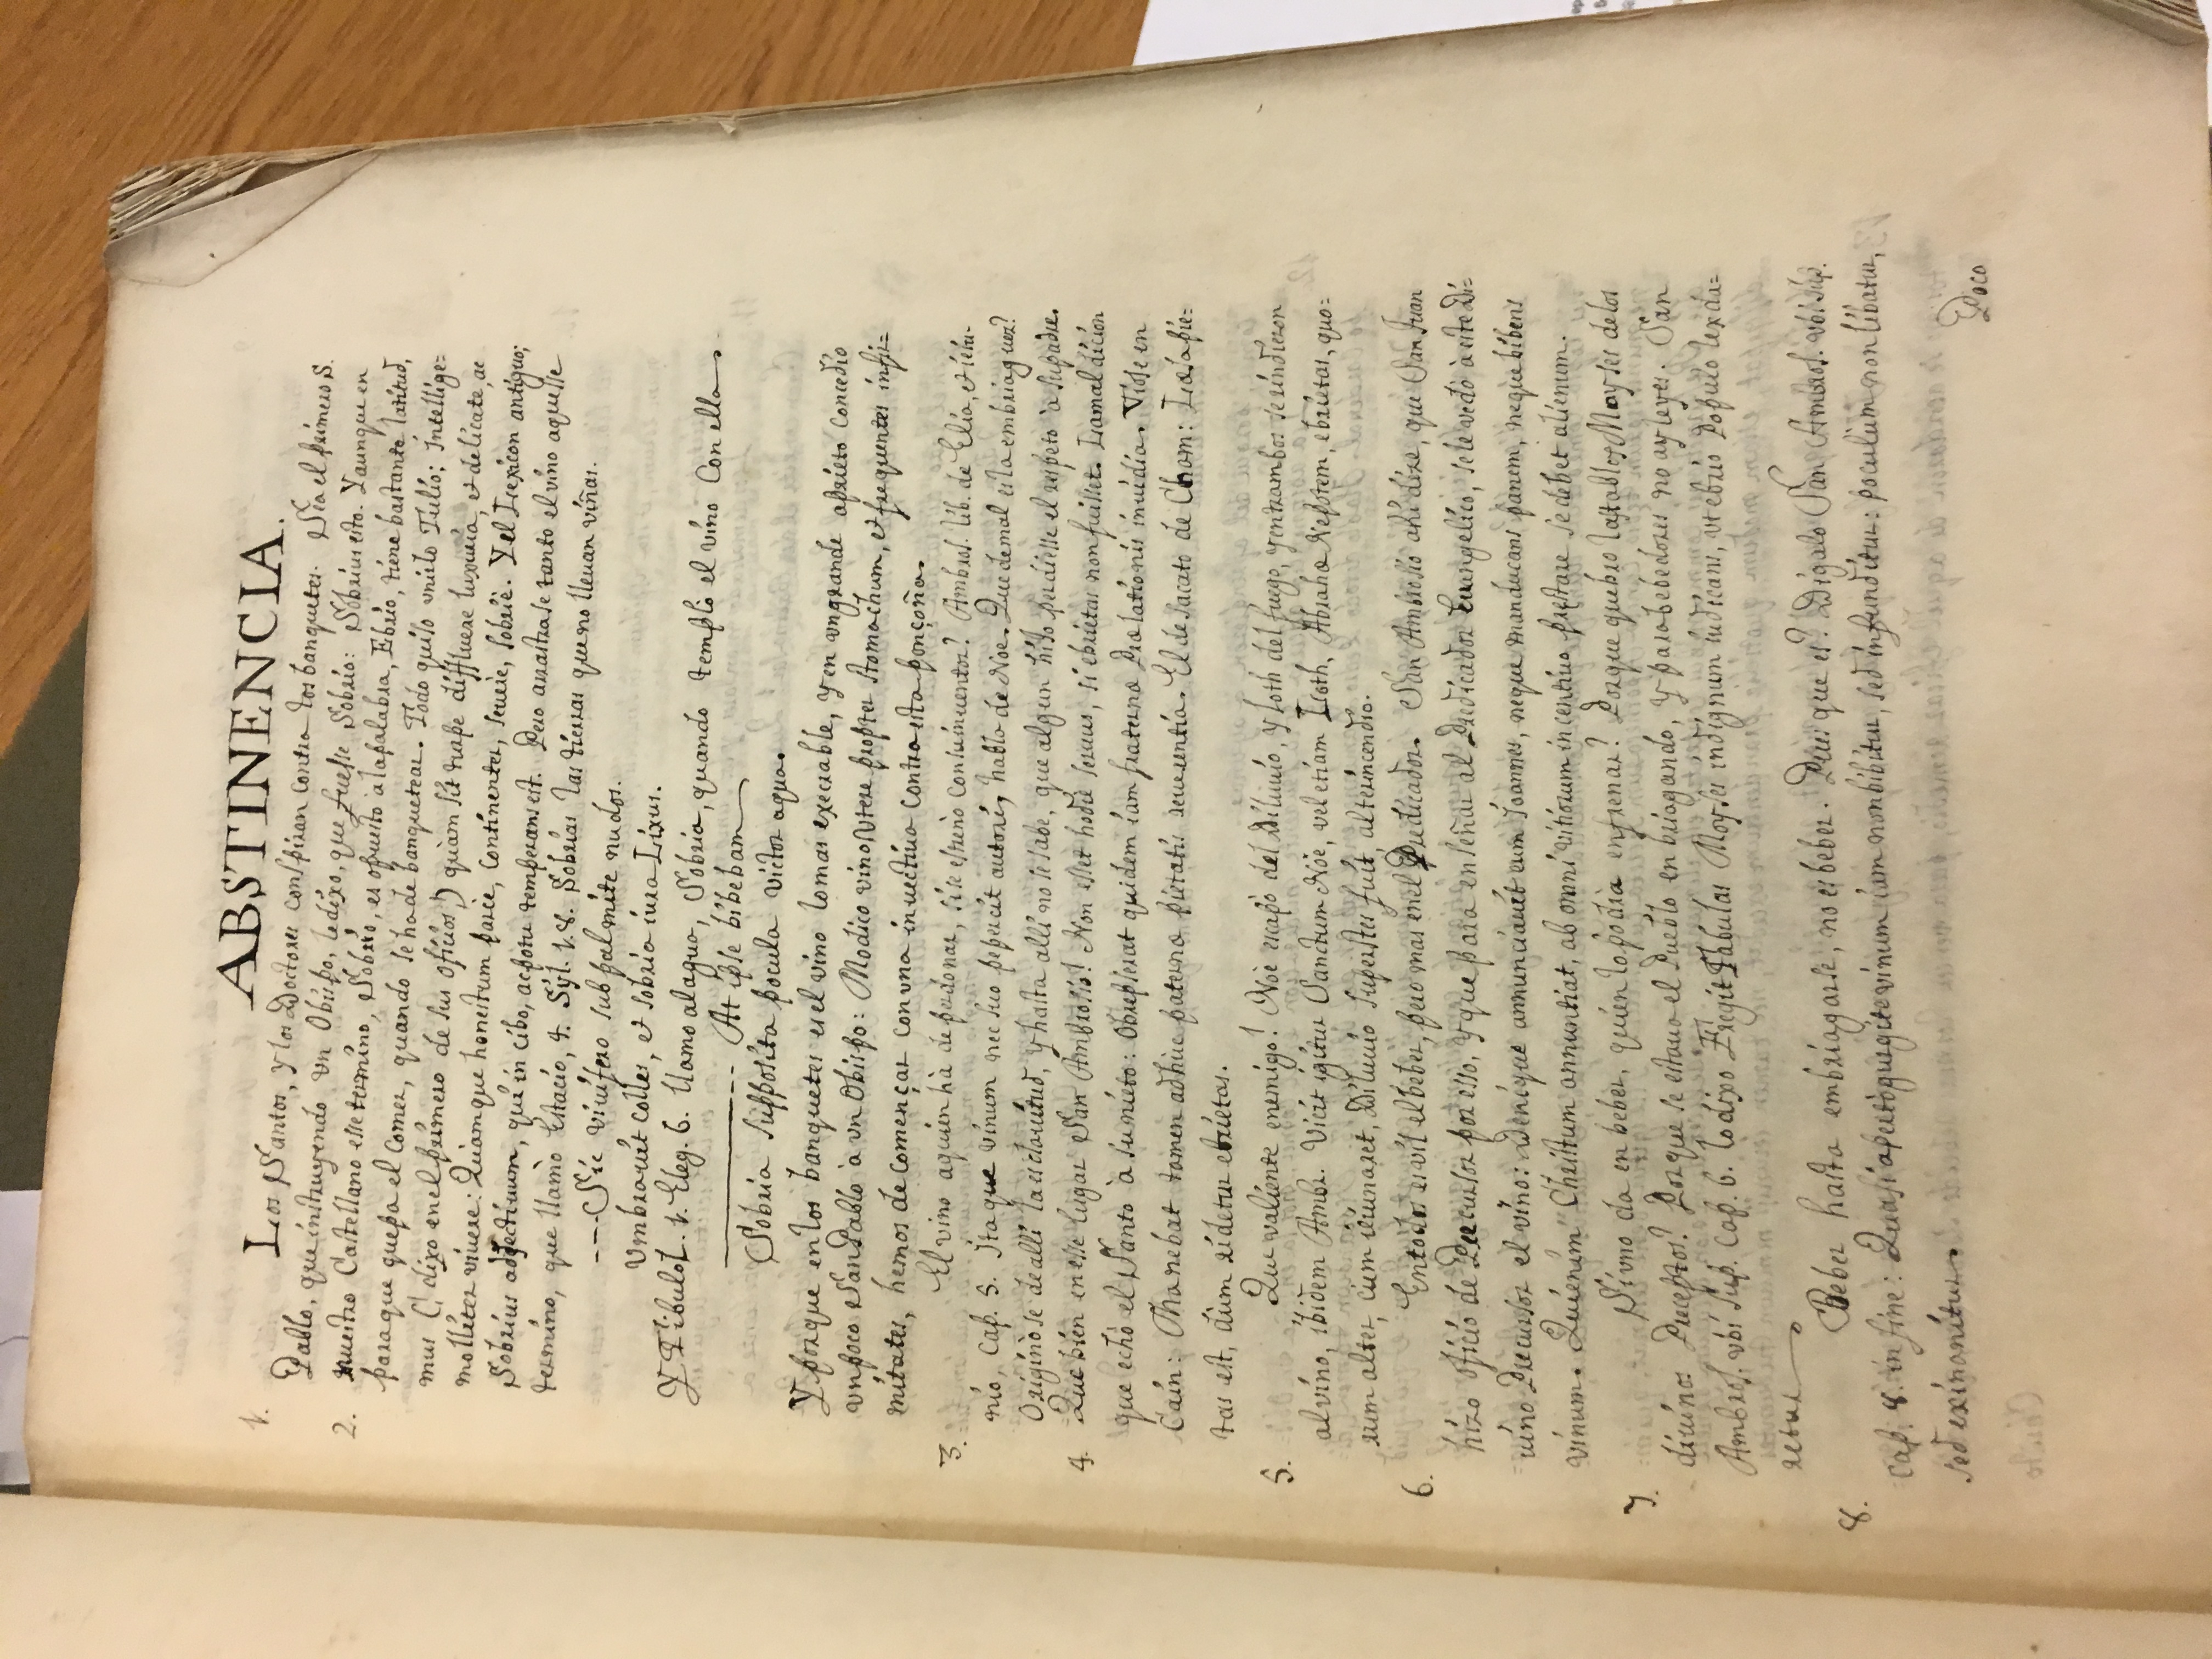 ABSTINENCIA.
1. Los Santos, y los Doctores conspiran contra los banquetes. Sea el primero S.
Pablo, que instruyendo vn Obispo, le dixo, que fuesse Sobrio: Sobrius esto. Y aunque en
2. nuestro Castellano esse termino, Sobrio, es opuesto à la palabra, Ebrio, tiene bastante latitud,
para que quepa el comer, quando se ha de banquetear. Todo quiso vnirlo Tulio; Intellige=
mus (dixo en el primero de sus oficios) quàm sit turpe diffluere luxuria, et delicate, ac
molliter viuere: Quàmque honestum parcè, continenter, seuerè, sobriè. Y el Lexicon antiguo;
Sobrius adjectiuum, qui in cibo, ac potu temperans est. Pero arrastrase tanto el vino aquesse
termino, que llamò Estacio, 4. Syl. 1.8. Sobrias las tierras que no lleuan viñas.
---Sic vinifero sub palmite nudos.
Vmbrauit colles, et sobria iura Lixus.
Y Tibulo L. 1. Eleg. 6. llamo al agua, Sobria, quando templò el vino con ella.
--- At ipse bibebam
Sobria supposita pocula victor aqua.
Y porque en los banquetes es el vino lo mas execrable, y en vn grande aprieto concedio
vn poco San Pablo à vn Obispo: Modico vino vtere propter stomachum, et frequentes infir=
mitates, hemos de començar con vna inuectiua contra esta ponçoña.
3. El vino a quien hà de perdonar, si se estrenò con su inuentor? Ambros. lib. de Elia, et ieiu-
nio, cap. 5. Itaque vinum nec suo pepercit autori, habla de Noe. Que de mal es la embriaguez?
Originòse de alli la esclauitud, y hasta alli no se sabe, que algun hijo perdiesse el respeto à su padre.
4. Que bien en esse lugar San Ambrosio! Non esset hodie seruus, si ebrietas non fuisset. La maldicion
que echò el Santo à su nieto: Obrepserat quidem iam fraternæ Prælationis inuidia. Viose en
Cain: Manebat tamen adhùc paternæ pietatis reuerentia. El desacato de Cham: Læsa pie=
tas est, dùm ridetur ebrietas.
5. Que valiente enemigo! Noè escapò del Diluuio, y Loth del fuego, y entrambos se rindieron
al vino, ibidem Ambr. Vicit igitur Sanctum Nöe, vel etiam Loth, Abrahæ Nepotem, ebrietas, quo=
rum alter, cùm ieiunaret, Diluuio superstes fuit, alter incendio.
6. En todos es vil el beber, pero mas en el Predicador. San Ambrosio ahi dize, que San Juan
hizo oficio de Precursor por esso, y que para enseñar al Predicador Euangelico, se le vedò à este Di=
uino Precursor el vino: Denique annunciauit eum Joannes, neque manducans panem, neque bibens
vinum. Qui enim Christum annuntiat, ab omni vitiorum incentiuo præstare se debet alienum.
7. Si vno da en beber, quien lo podrà enfrenar? Porque quebro las tablas Moyses de los
diuinos Preceptos? Porque se estaua el Pueblo enbriagando, y para bebedores no ay leyes. San
Ambros. vbi sup. cap. 6. lo dixo Fregit Tabulas Moyses indignum iudicans, vt ebrio Populo lex da=
retur
8. Beber hasta embriagarse, no es beber. Pues que es? Digalo San Ambros. vbi sup.
cap. 8. in fine: Quasi apertò gurgite vinum iam non bibitur, sed infunditur: poculùm non libatur,
sed exinanitur.
Poco